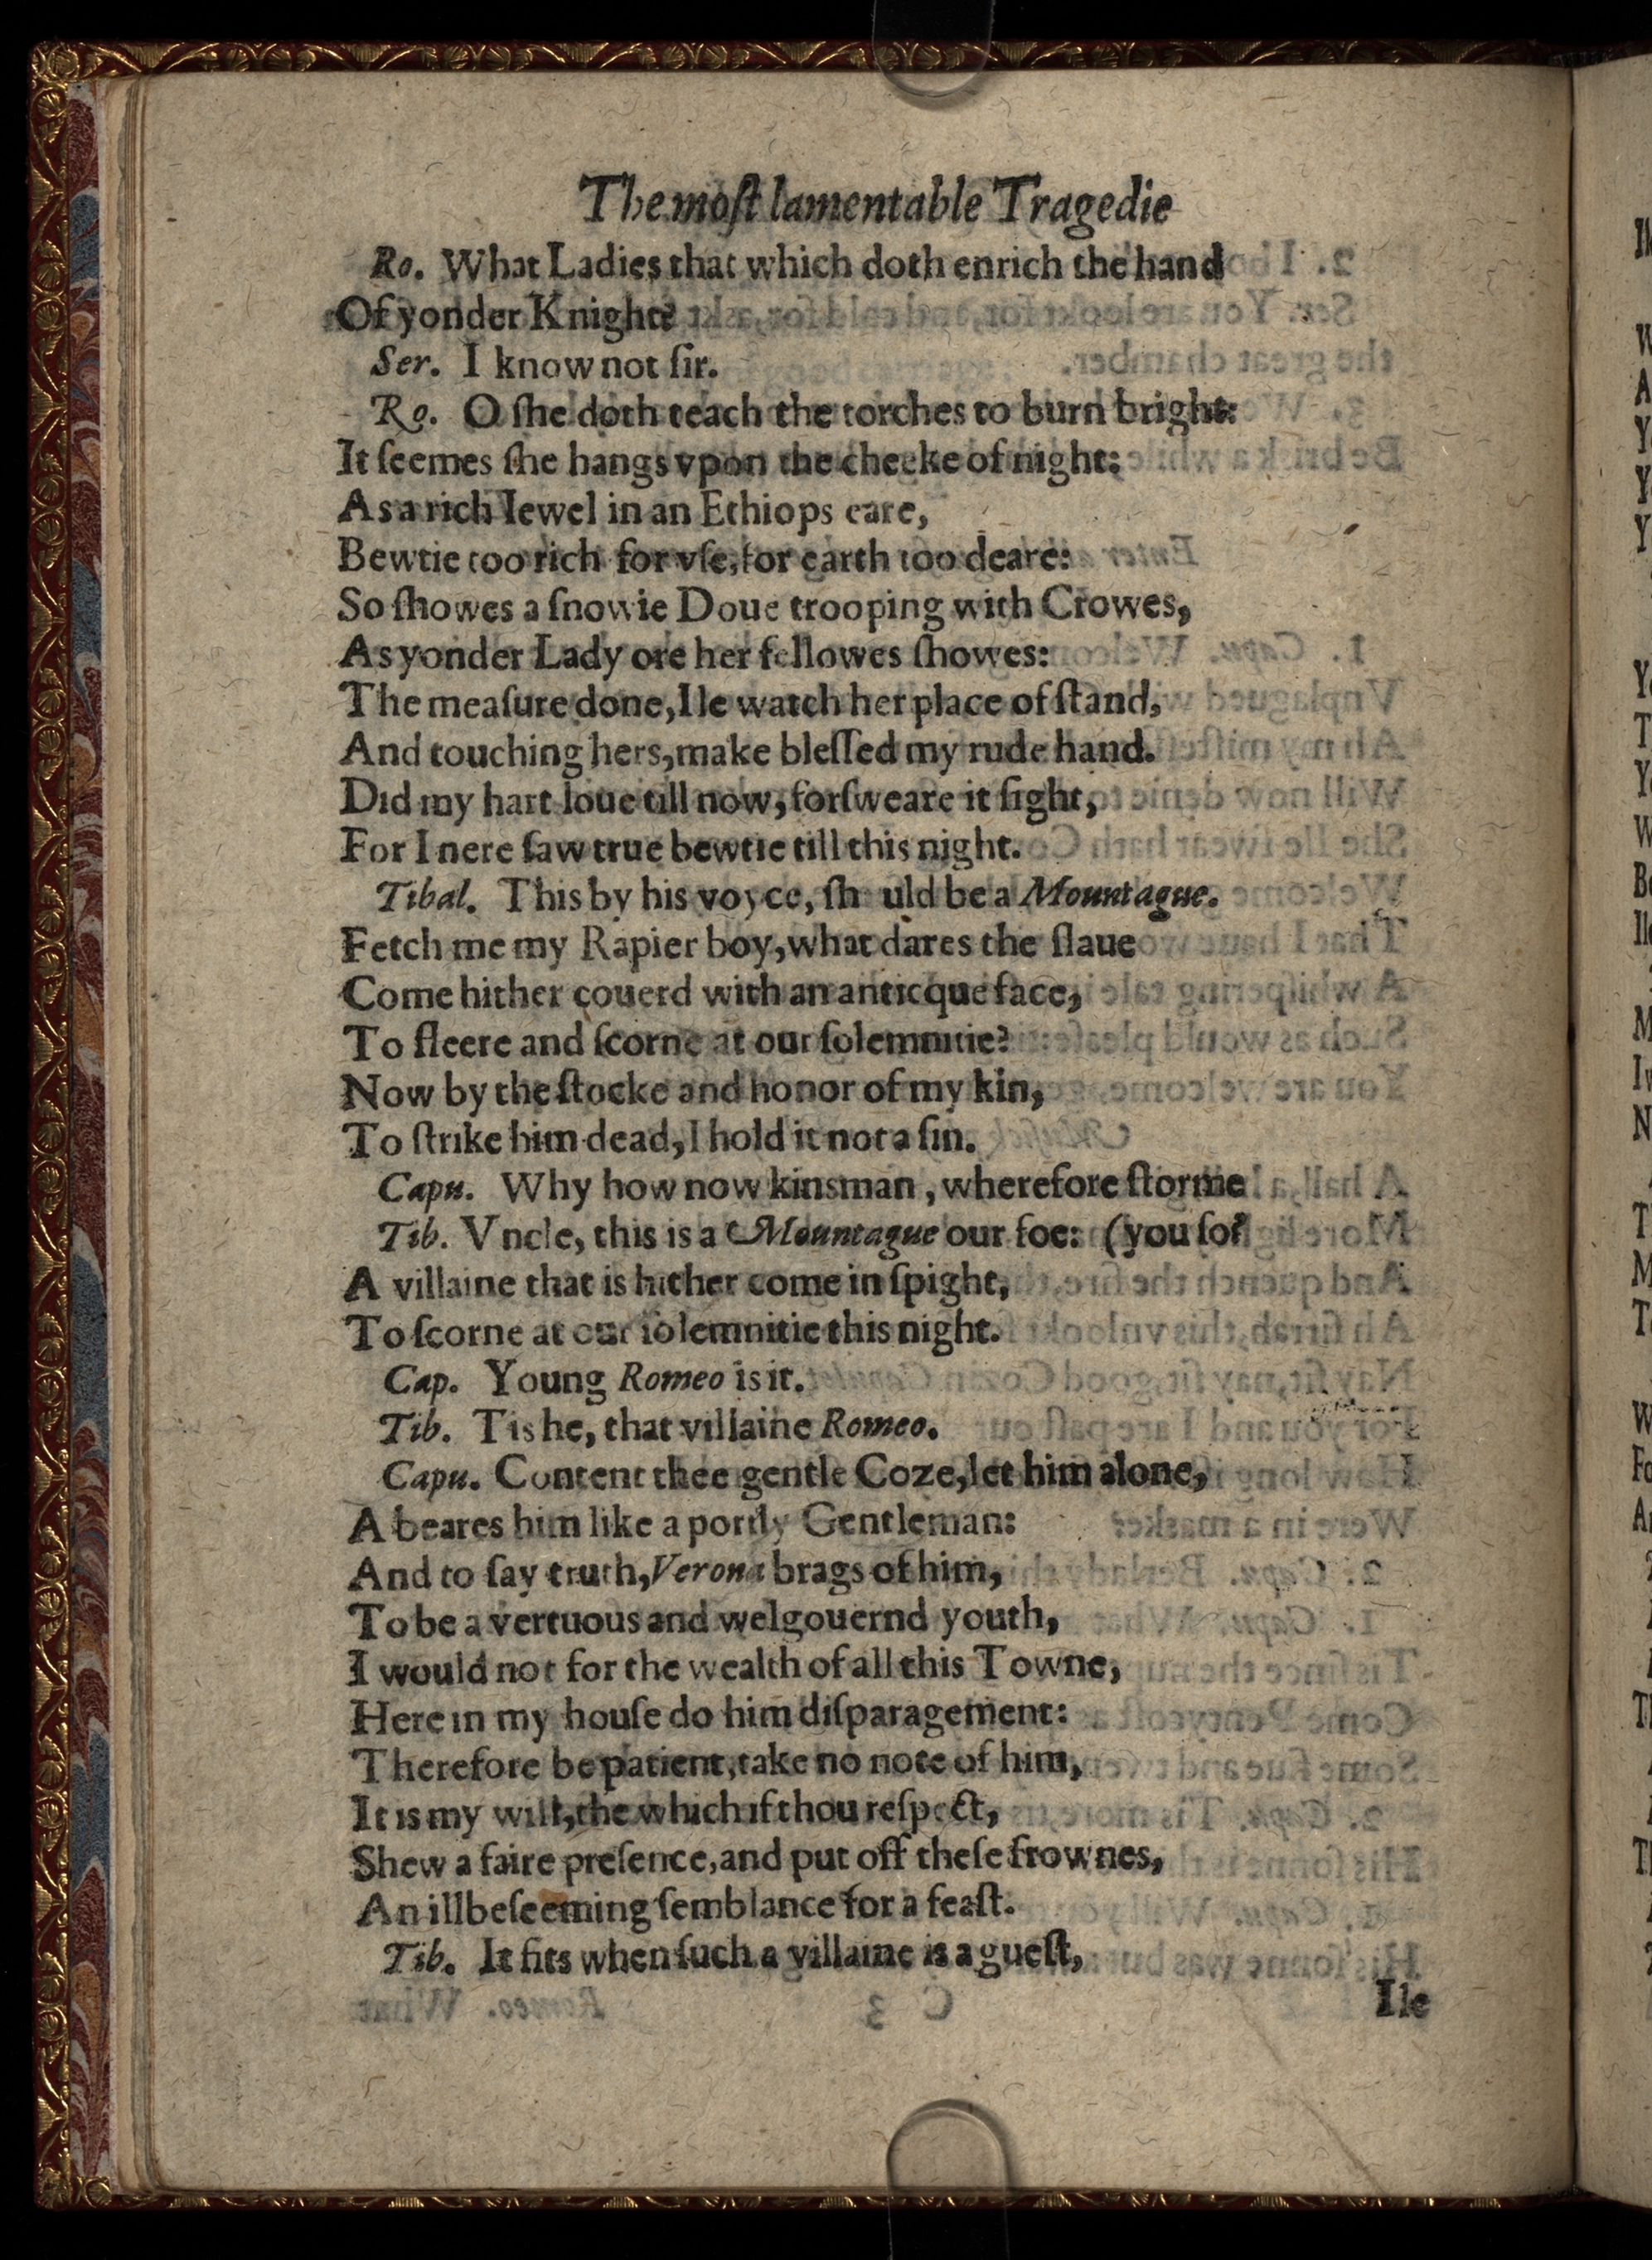 The moſt lamentable Tragedie
Ro. What Ladies that which doth enrich the hand
Of yonder Knight?
Ser. I know not ſir.
Ro. O ſhe doth teach the torches to burn bright:
It ſeemes ſhe hangs vpon the cheeke of night:
As a rich Iewel in an Ethiops eare,
Bewtie too rich for vſe, for earth too deare:
So ſhowes a ſnowie Doue trooping with Crowes,
As yonder Lady ore her fellowes ſhowes:
The meaſure done, Ile watch her place of ſtand,
And touching hers, make bleſſed my rude hand.
Did my hart loue till now, forſweare it ſight,
For I nere ſaw true bewtie till this night.
Tibal. This by his voyce, ſh uld be a Mountague.
Fetch me my Rapier boy, what dares the ſlaue
Come hither couerd with an anticque face,
To fleere and ſcorne at our ſolemnitie?
Now by the ſtocke and honor of my kin,
To ſtrike him dead, I hold it not a ſin.
Capu. Why how now kinsman, wherefore ſtorme
Tib. Vncle, this is a Mountague our foe: (you ſo?
A villaine that is hither come in ſpight,
To ſcorne at our ſolemnitie this night.
Cap. Young Romeo is it.
Tib. Tis he, that villaine Romeo.
Capu. Content thee gentle Coze, let him alone,
A beares him like a portly Gentleman:
And to ſay truth, Verona brags of him,
To be a vertuous and welgouernd youth,
I would not for the wealth of all this Towne,
Here in my houſe do him diſparagement:
Therefore be patient, take no note of him,
It is my will, the which if thou reſpect,
Shew a faire preſence, and put off theſe frownes,
An illbeſeeming ſemblance for a feaſt.
Tib. It fits when ſuch a villaine is a gueſt,
Ile